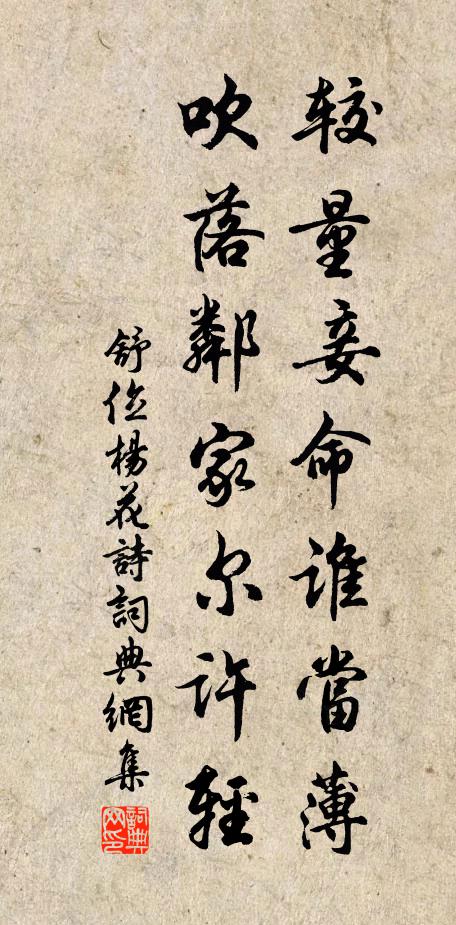 较量妾命谁當薄
吹落鄰家尔许輕
舒位楊花詩詞典網集
詞典網印